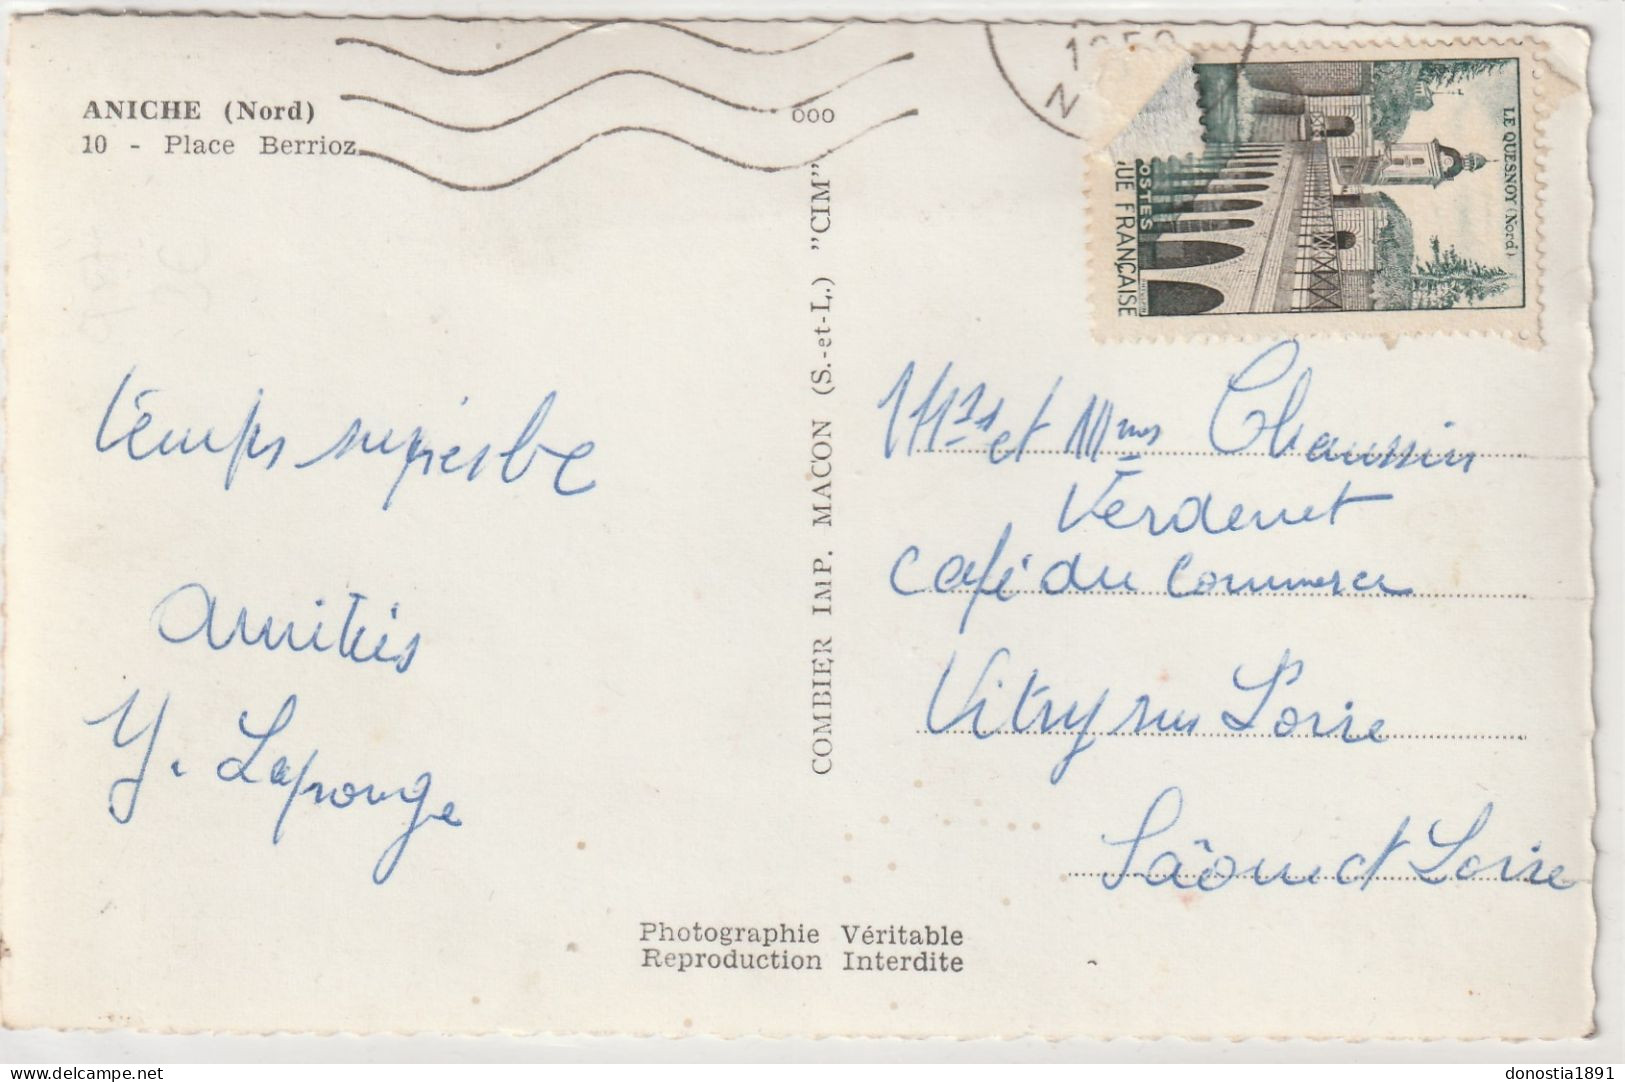 ANICHE (Nord)
10 - Place Berrioz
Temps superbe
Amitiés
Y. Laponge
Photographie Véritable
Reproduction Interdite
000
COMBIER IMP. MACON (S.-et-L.) "CIM"
N
LE QUESNOY (Nord)
OSTES
UE FRANÇAISE
Mrs et Mmes Chaussin
Verdenet
Café du Commerce
Vitry sur Loire
Saône et Loire
donostia1891
delcampe.net